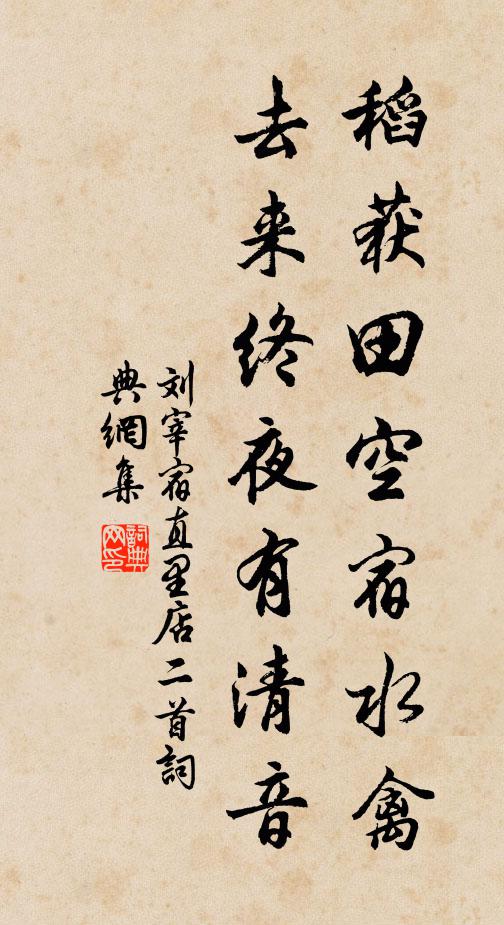 稻获田空宿水禽
去来终夜有清音
刘宰宿直里店二首詞
典網集
詞典网印